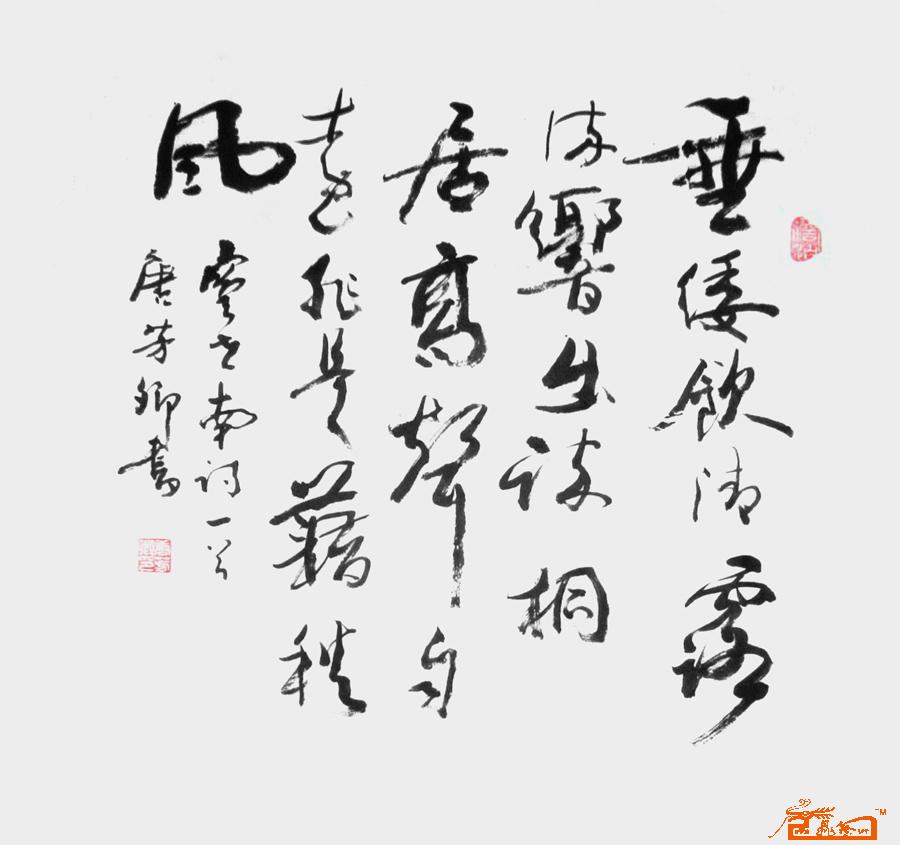 垂倭飲清露
流響出疎桐
居高聲自
遠非是藉秋
風
虞世南詩一首
唐芳卿書